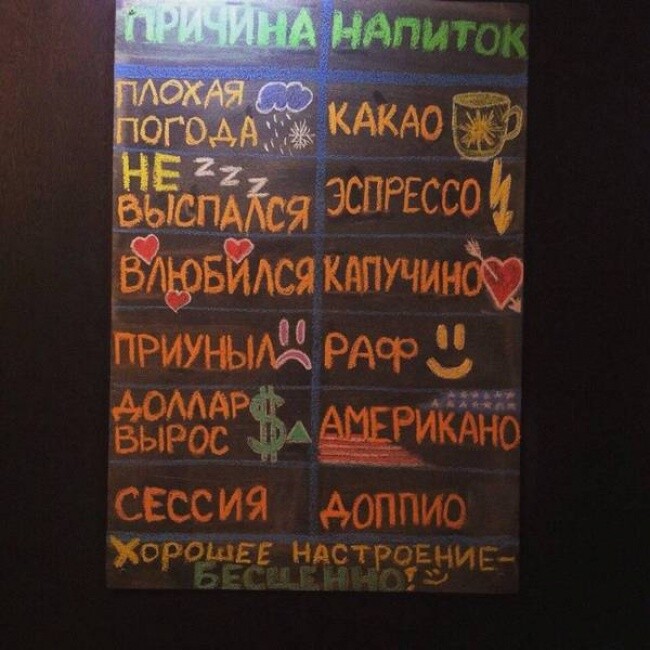 ПРИЧИНА НАПИТОК
ПЛОХАЯ ПОГОДА КАКАО
НЕ ZZZ ВЫСПАЛСЯ ЭСПРЕССО
ВЛЮБИЛСЯ КАПУЧИНО
ПРИУНЫЛ РАФ
ДОЛЛАР ВЫРОС $ АМЕРИКАНО
СЕССИЯ ДОППИО
ХОРОШЕЕ НАСТРОЕНИЕ-
БЕСЦЕННО!